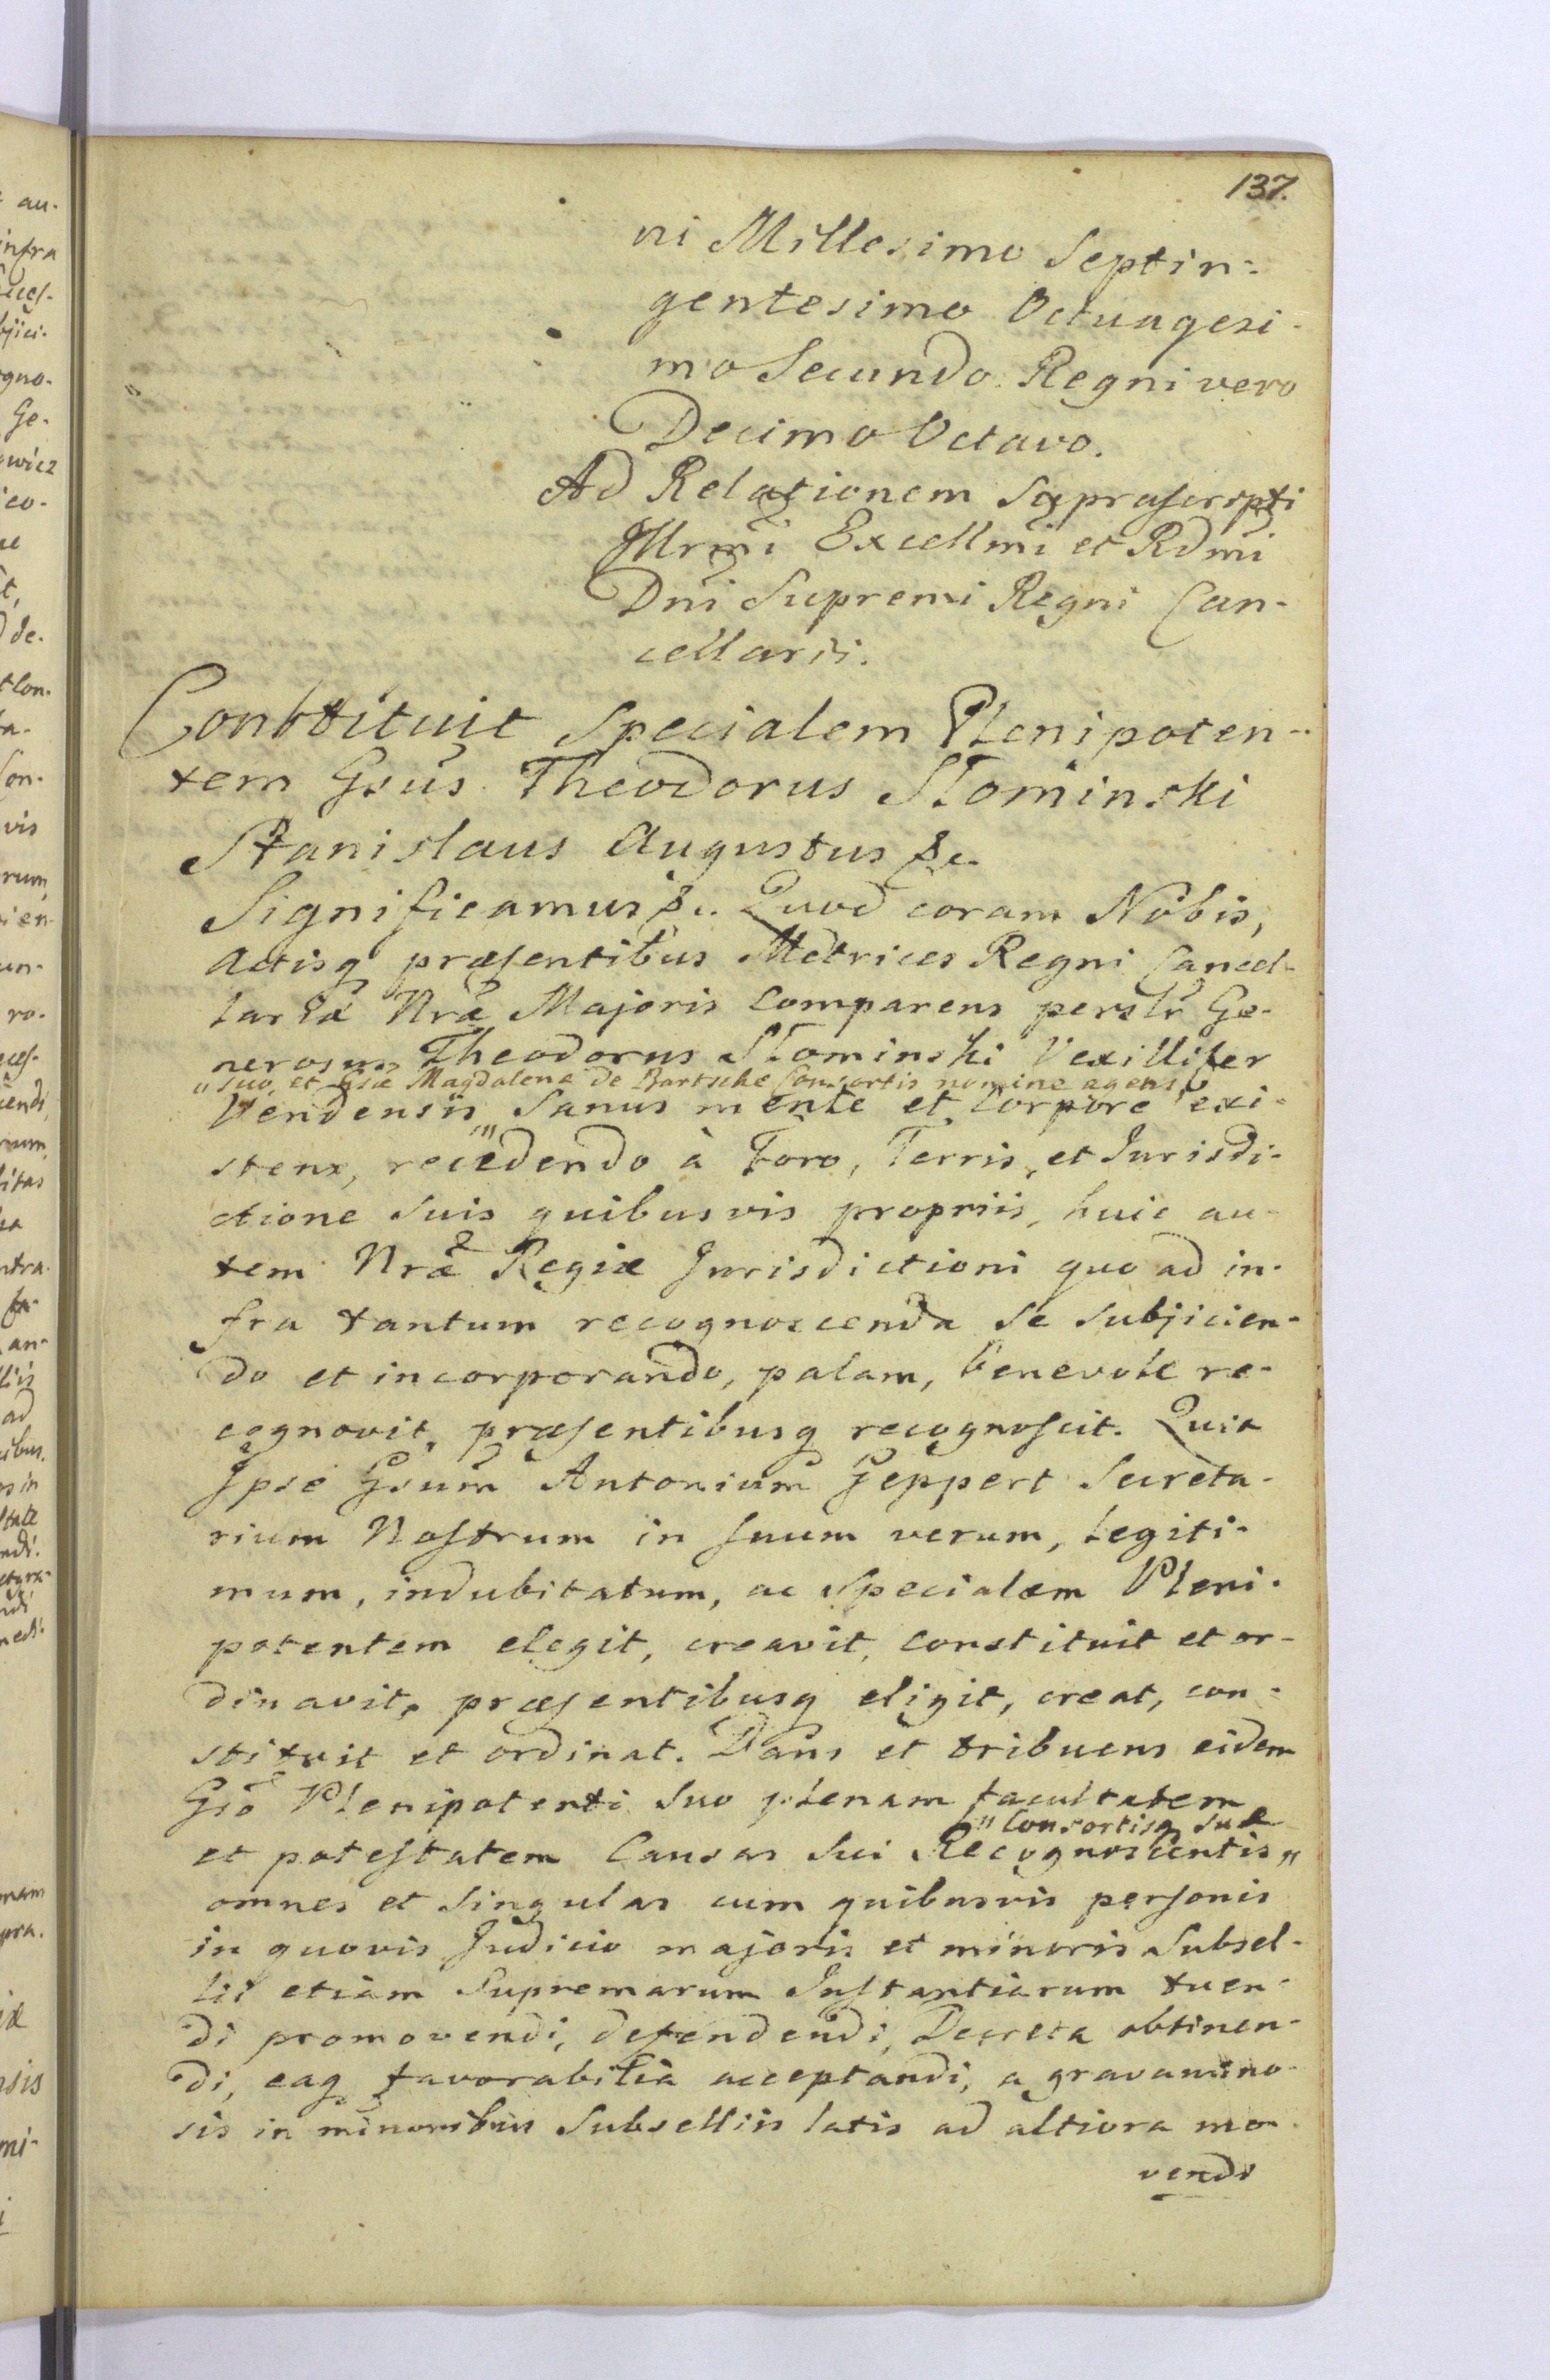 137.
ni Millesimo Septin-
gentesimo Octuagesi-
mo Secundo. Regni vero
Decimo Octavo.
Ad Relationem Suprascripti
Illrmi Excellmi et Rdmi
Dni Supremi Regni Can-
cellarii.
Constituit Specialem Plenipoten-
tem Gsus Theodorus Słominski
Stanislaus Augustus &c.
Significamus &c. Quod coram Nobis,
Actisq præsentibus Metrices Regni Cancel-
lariæ Nræ Majoris Comparens perslr Ge-
nerosus Theodorus Słominski Vexillifer
"suo, et Gsæ Magdalenæ de Bartsche Consortis nomine agens"
Vendensis sanus mente et Corpore exi-
stens, recedendo à Foro, Terris, et Jurisdi-
ctione Suis quibusvis propriis, huic au-
tem Nræ Regiæ Jurisdictioni quo ad in-
fra tantum recognoscenda se subjicien-
do et incorporando, palam, benevole re-
cognovit, præsentibusq recognoscit. Quia
Ipse Gsum Antonium Geppert Secreta-
rium Nostrum in suum verum, legiti-
mum, indubitatum, ac Specialem Pleni-
potentem elegit, creavit, constituit et or-
dinavit, præsentibusq eligit, creat, con-
stituit et ordinat. Dans et tribuens eidem
Gso Plenipotenti Suo plenam facultatem
" Consortisq suæ
et potestatem Causas Sui Recognoscentis "
omnes et Singulas cum quibusvis personis
in quovis Judicio majoris et minoris Subsel-
lii etiam Supremarum Instantiarum tuen-
di promovendi, defendendi, Decreta obtinen-
di, eaq favorabilia acceptandi, a gravamino-
sis in minoribus Subselliis latis ad altiora mo-
vendi